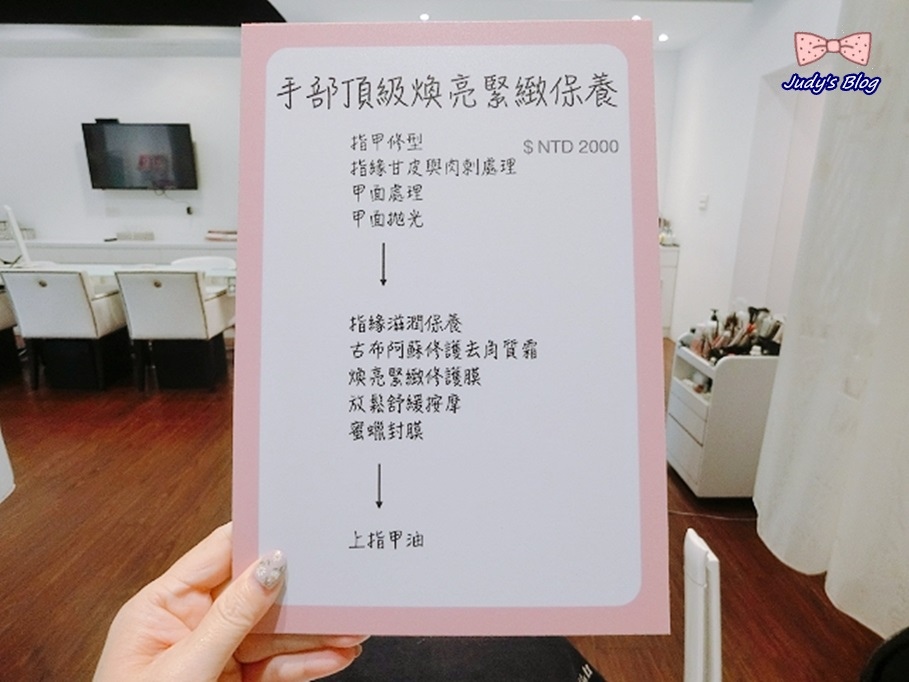 Judy's Blog
手部頂級煥亮緊緻保養
$ NTD 2000
指甲修型
指緣甘皮與肉刺處理
甲面處理
甲面拋光
指緣滋潤保養
古布阿蘇修護去角質霜
煥亮緊緻修護膜
放鬆舒緩按摩
蜜蠟封膜
上指甲油